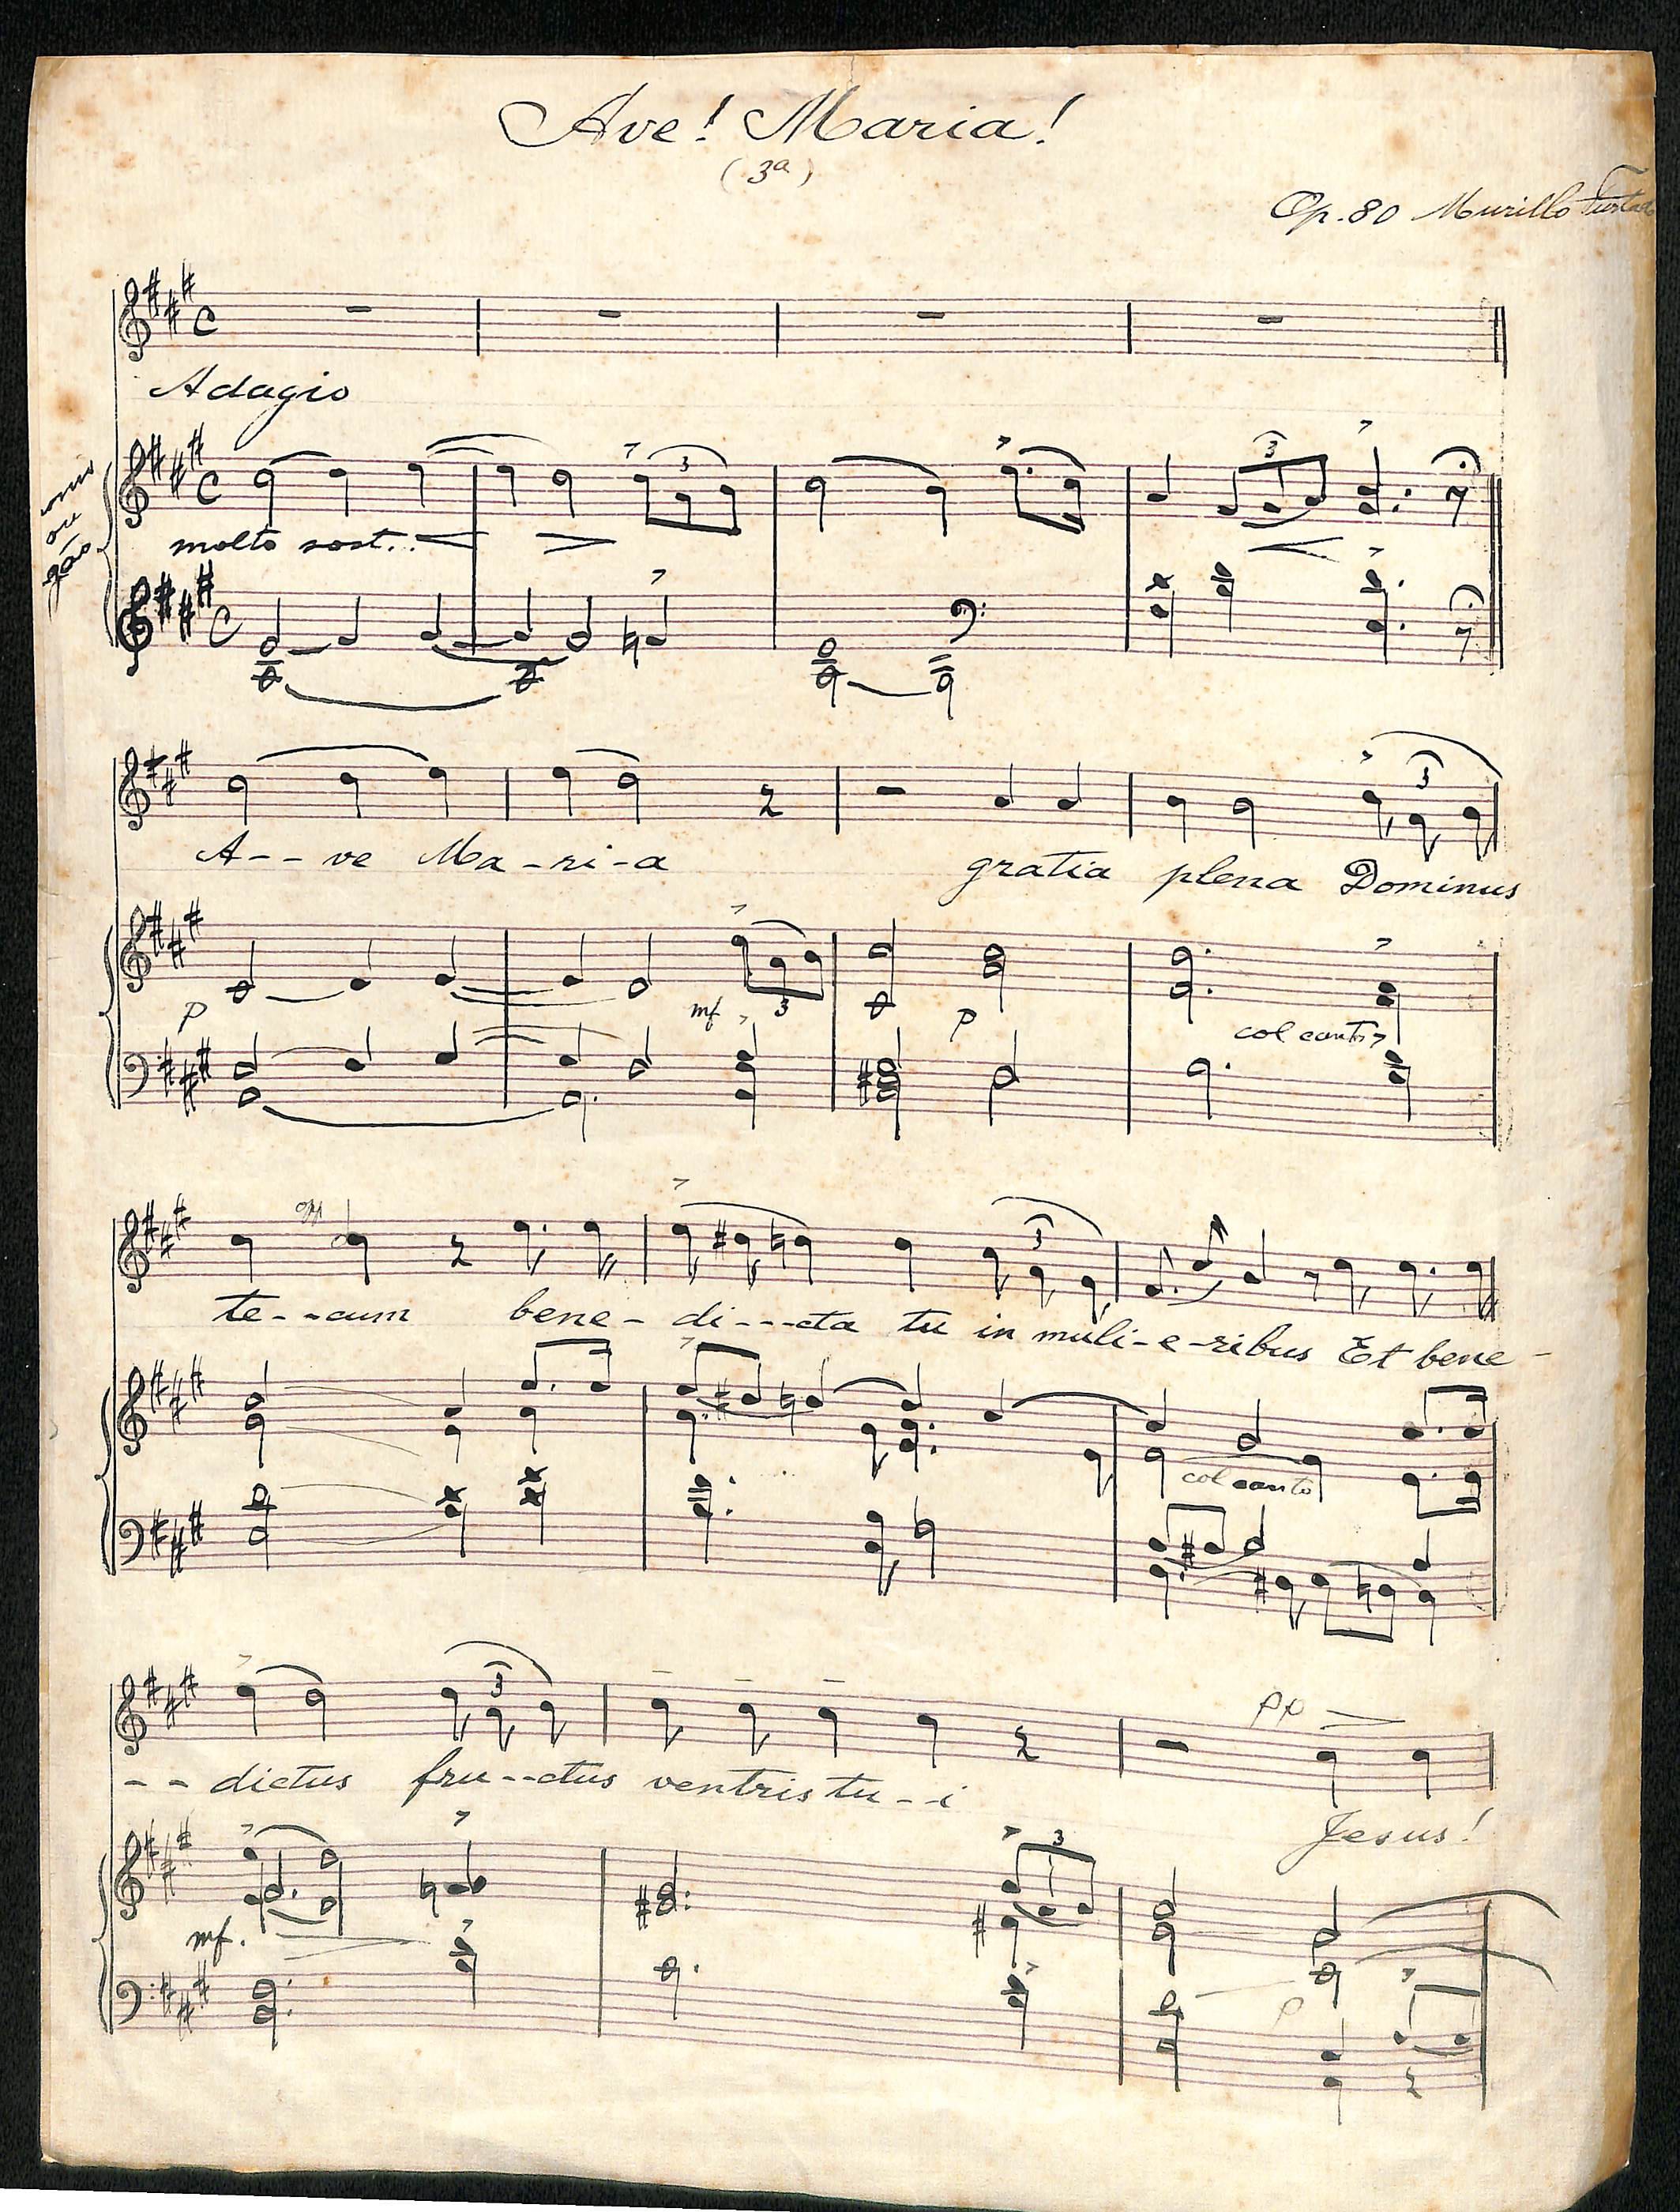 Ave! Maria!
(3ª)
Op. 80 Murillo Furtado
Adagio
3
3
ou
gão
molto sost..
A-- ve Ma-ri-a gratia plena Dominus
3
p mf 3 p
col canto
opp
3
te--cum bene- di---cta tu in muli-e-ribus Et bene-
col canto
3
pp
-- dictus fru--ctus ventris tu--i
Jesus!
3
mf.
p